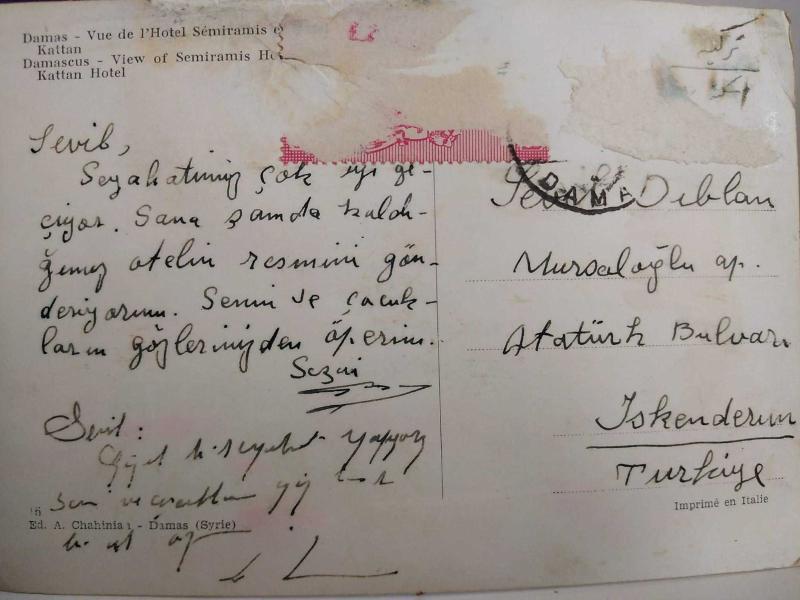 Damas - Vue de l'Hotel Sémiramis e
Kattan
Damascus - View of Semiramis Ho
Kattan Hotel
تركيا
DAMA
Sevil,
Seyahatımız çok iyi ge-
çiyor. Sana Şamda kaldı-
ğımız otelin resmini gön-
deriyorum. Senin ve çocuk-
ların gözlerinizden öperim.
Sezai
Sevil:
Güzel bir seyahat yapıyoruz
Ed. A. Chahinia - Damas (Syrie)
Sevil Dıblan
Mursaloğlu ap.
Atatürk Bulvarı
İskenderun
Türkiye
Imprimé en Italie